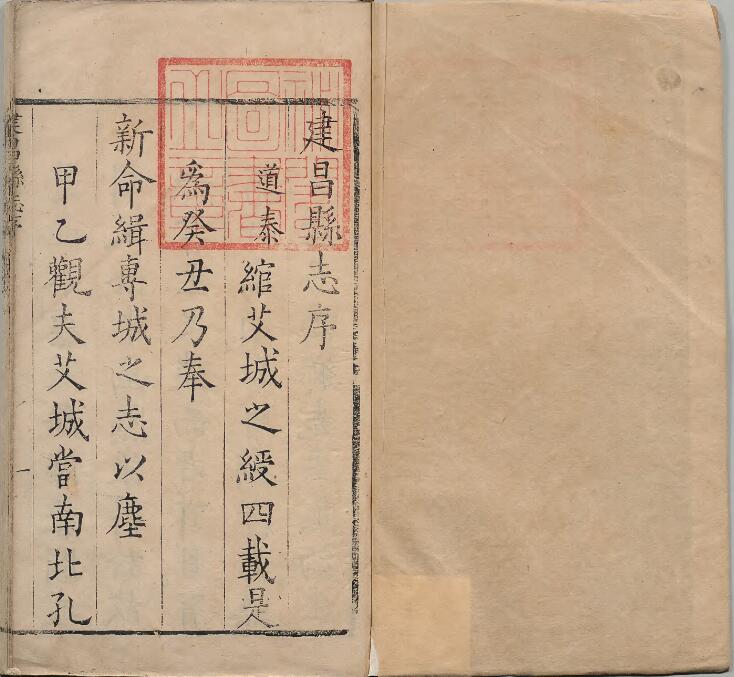 建昌縣志序
道泰綰艾城之綬四載是
為癸丑乃奉
新命緝專城之志以塵
甲乙觀夫艾城當南北孔